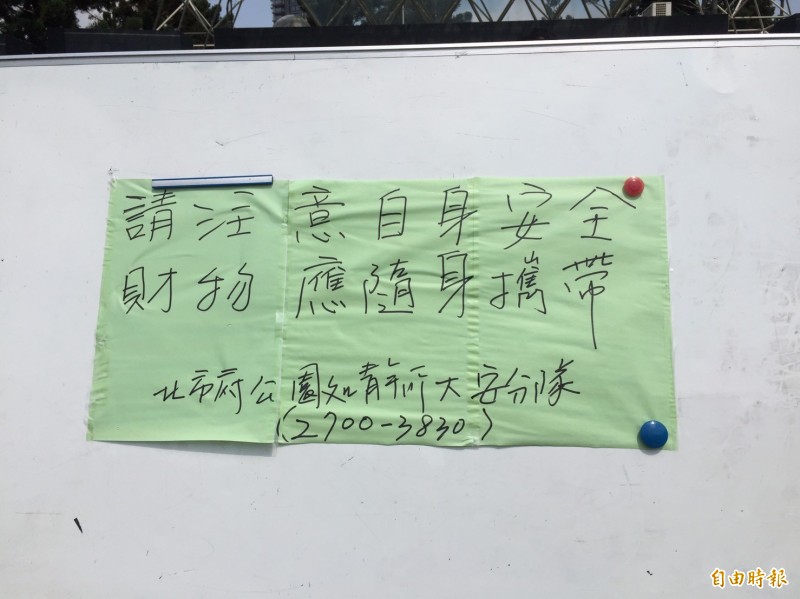 請注意自身安全
財物應隨身攜帶
北市府公園如青年所大安分隊
(2700-3830)
自由時報